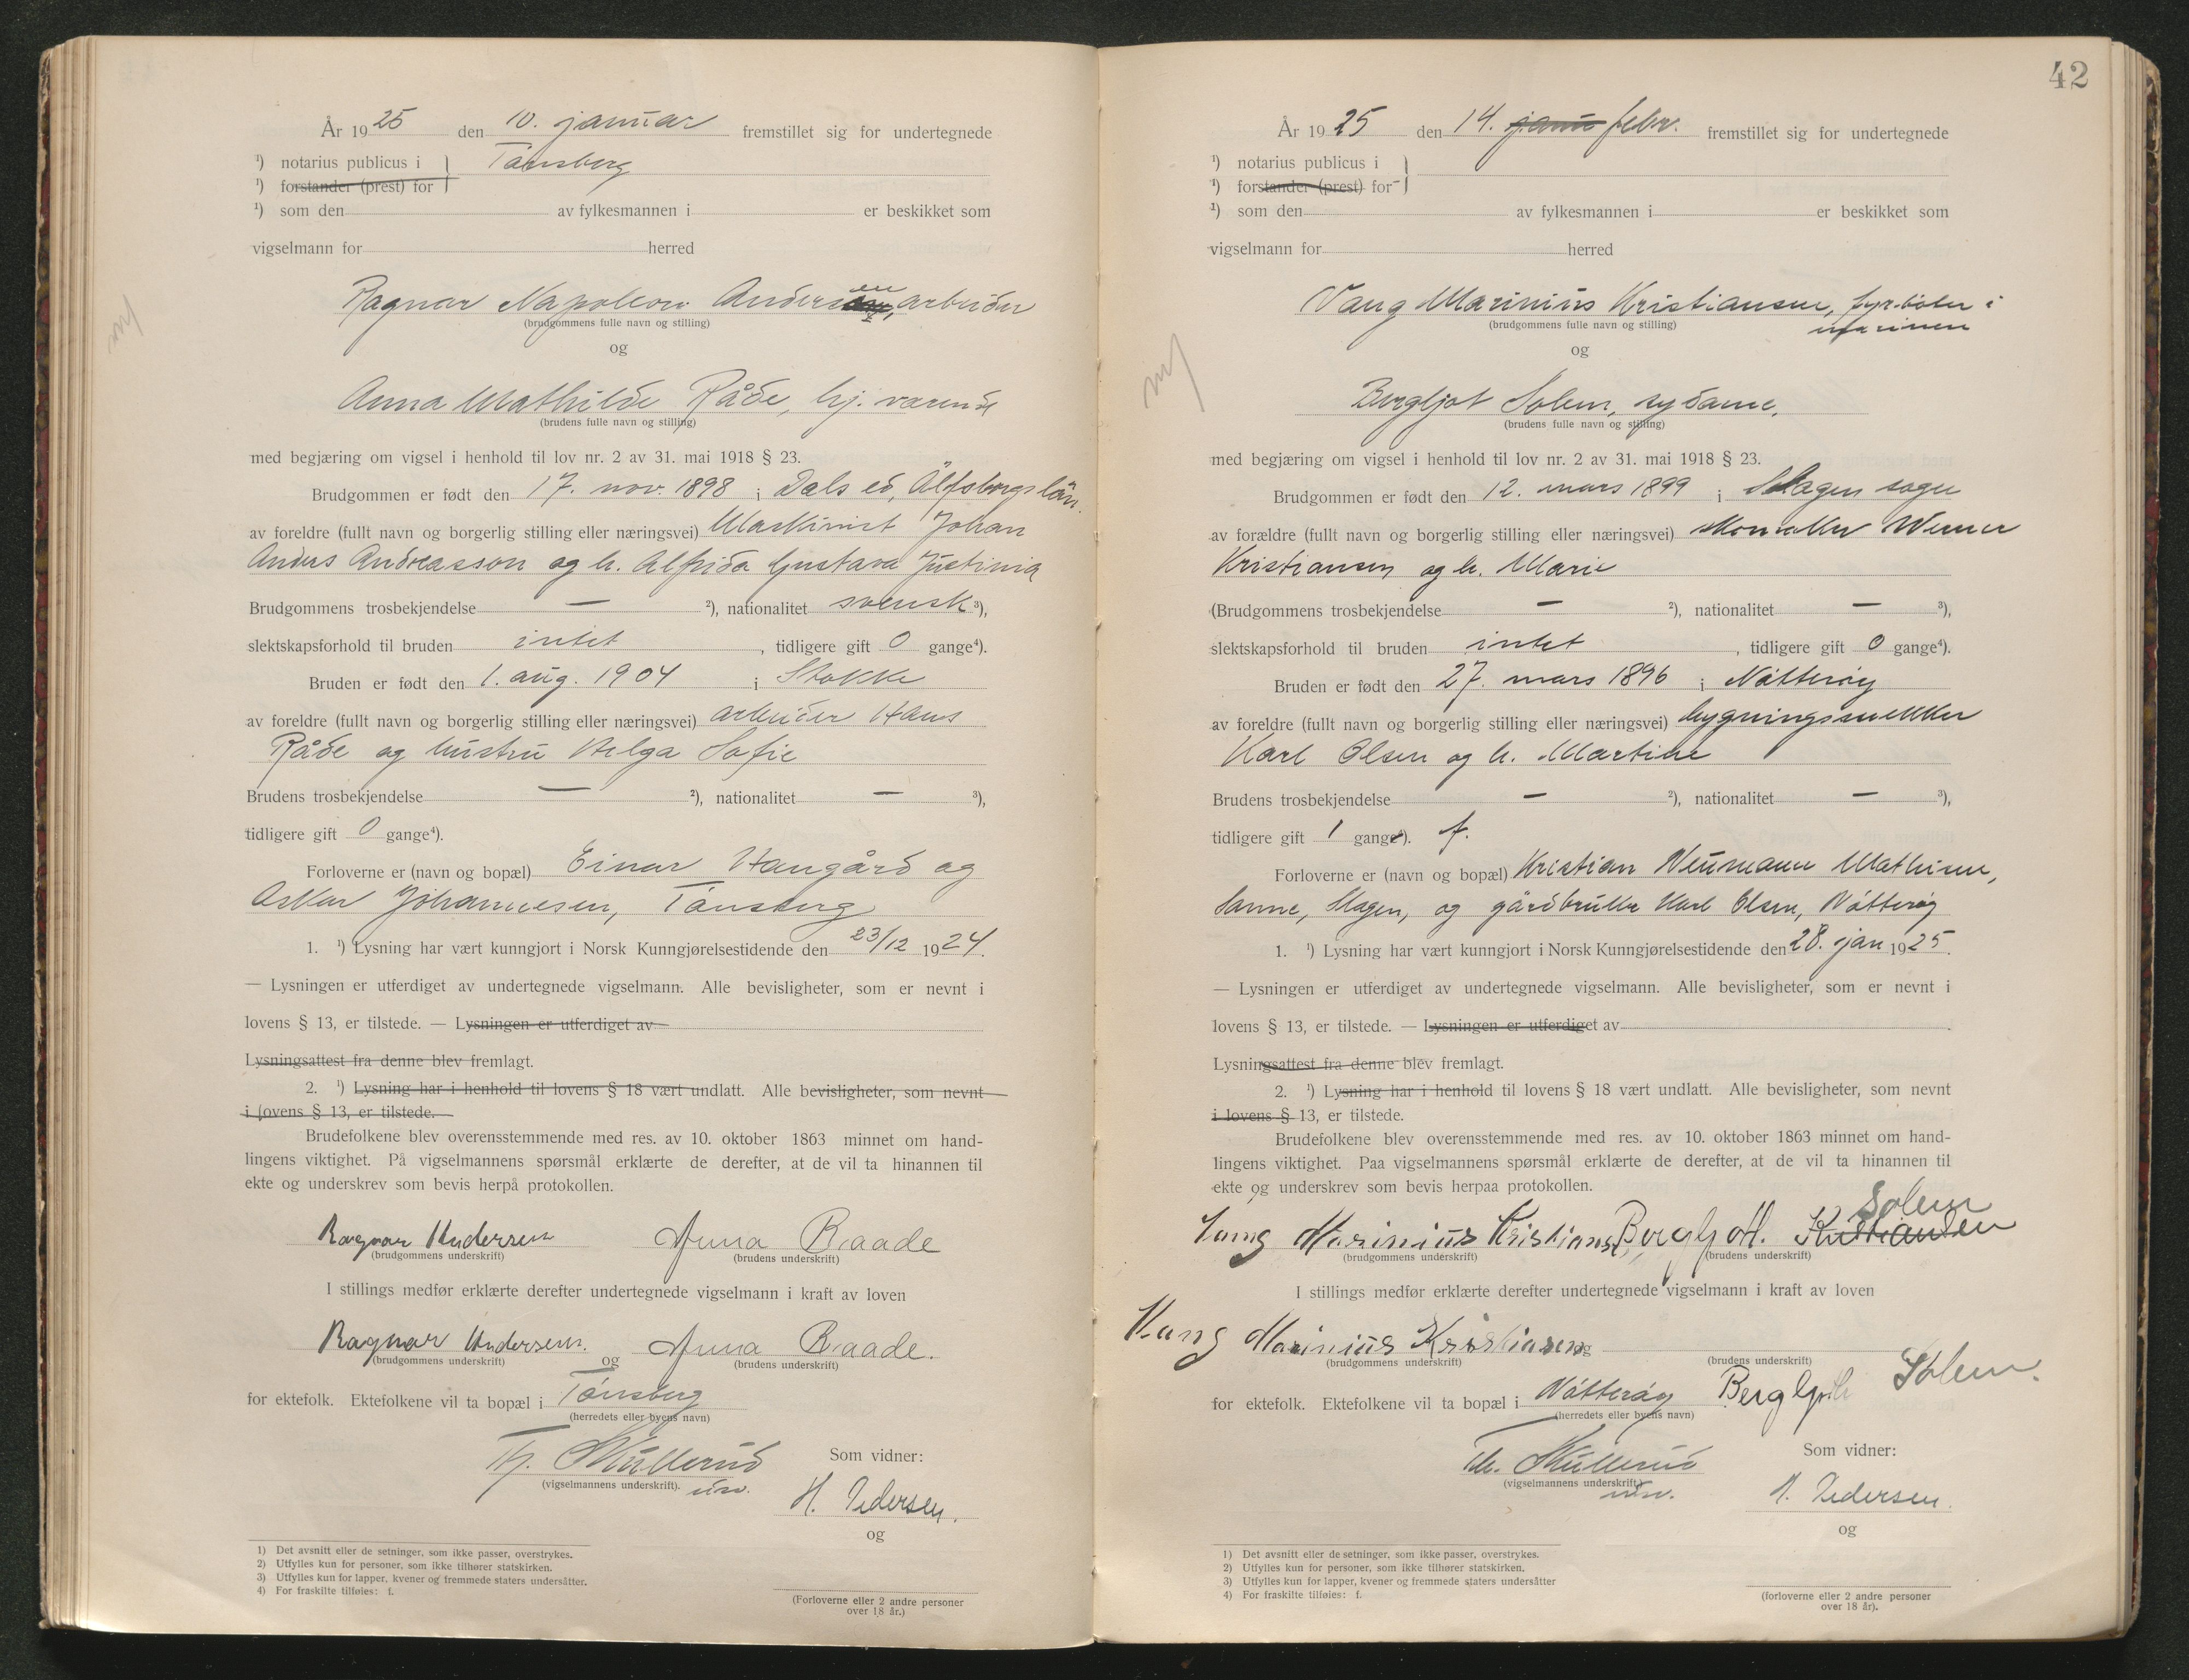 År 1925 den 10. januar fremstillet sig for undertegnede
¹) notarius publicus i } Tønsberg
¹) forstander (prest) for
¹) som den av fylkesmannen i er beskikket som
vigselmann for herred
Ragnar Napoleon Andersen, arbeider
(brudgommens fulle navn og stilling)
og
Anna Mathilde Råde, hj. værende
(brudens fulle navn og stilling)
med begjæring om vigsel i henhold til lov nr. 2 av 31. mai 1918 § 23.
Brudgommen er født den 17. nov. 1898 i Dals ed, Älfsborgs län.
av foreldre (fullt navn og borgerlig stilling eller næringsvei) Maskinist Johan
Anders Andreasson og h. Alfrida Gustava Justinia
Brudgommens trosbekjendelse — ²), nationalitet svensk ³),
slektskapsforhold til bruden intet, tidligere gift 0 gange⁴).
Bruden er født den 1. aug. 1904 i Stokke
av foreldre (fullt navn og borgerlig stilling eller næringsvei) arbeider Hans
Råde og hustru Helga Sofie
Brudens trosbekjendelse — ²), nationalitet — ³),
tidligere gift 0 gange⁴).
Forloverne er (navn og bopæl) Einar Haugård og
Oskar Johannesen, Tønsberg
1. ¹) Lysning har vært kunngjort i Norsk Kunngjørelsestidende den 23/12 1924.
— Lysningen er utferdiget av undertegnede vigselmann. Alle bevisligheter, som er nevnt i
lovens § 13, er tilstede. — Lysningen er utferdiget av
Lysningsattest fra denne blev fremlagt.
2. ¹) Lysning har i henhold til lovens § 18 vært undlatt. Alle bevisligheter, som nevnt
i lovens § 13, er tilstede.
Brudefolkene blev overensstemmende med res. av 10. oktober 1863 minnet om hand-
lingens viktighet. På vigselmannens spørsmål erklærte de derefter, at de vil ta hinannen til
ekte og underskrev som bevis herpå protokollen.
Ragnar Andersen Anna Raade
(brudgommens underskrift) (brudens underskrift)
I stillings medfør erklærte derefter undertegnede vigselmann i kraft av loven
Ragnar Andersen. og Anna Raade.
(brudgommens underskrift) (brudens underskrift)
for ektefolk. Ektefolkene vil ta bopæl i Tønsberg
(herredets eller byens navn)
Th. Skullerud
(vigselmannens underskrift).
Som vidner:
H. Pedersen.
og
1) Det avsnitt eller de setninger, som ikke passer, overstrykes.
2) Utfylles kun for personer, som ikke tilhører statskirken.
3) Utfylles kun for lapper, kvener og fremmede staters undersåtter.
4) For fraskilte tilføies: f.
(Forloverne eller 2 andre personer
over 18 år.)
42
År 1925 den 14. janu febr. fremstillet sig for undertegnede
¹) notarius publicus i }
¹) forstander (prest) for
¹) som den av fylkesmannen i er beskikket som
vigselmann for herred
Vang Marinius Kristiansen, fyrbøter i
marinen
(brudgommens fulle navn og stilling)
og
Bergljot Solem, sydame.
(brudens fulle navn og stilling)
med begjæring om vigsel i henhold til lov nr. 2 av 31. mai 1918 § 23.
Brudgommen er født den 12. mars 1899 i Slagen sogn
av forældre (fullt navn og borgerlig stilling eller næringsvei) Werner
Kristiansen og h. Marie
(Brudgommens trosbekjendelse — ²), nationalitet — ³),
slektskapsforhold til bruden intet, tidligere gift 0 gange⁴).
Bruden er født den 27. mars 1896 i Nøtterøy
av foreldre (fullt navn og borgerlig stilling eller næringsvei) bygningssnekker
Karl Olsen og h. Martine
Brudens trosbekjendelse — ²), nationalitet — ³),
tidligere gift 1 gange⁴). f.
Forloverne er (navn og bopæl) Kristian Neumann Mathisen,
Sanne, Slagen, og gårdbruker Karl Olsen, Nøtterøy
1. ¹) Lysning har vært kunngjort i Norsk Kunngjørelsestidende den 28. jan 1925.
— Lysningen er utferdiget av undertegnede vigselmann. Alle bevisligheter, som er nevnt i
lovens § 13, er tilstede. — Lysningen er utferdiget av
Lysningsattest fra denne blev fremlagt.
2. ¹) Lysning har i henhold til lovens § 18 vært undlatt. Alle bevisligheter, som nevnt
i lovens § 13, er tilstede.
Brudefolkene blev overensstemmende med res. av 10. oktober 1863 minnet om hand-
lingens viktighet. Paa vigselmannens spørsmål erklærte de derefter, at de vil ta hinannen til
ekte og underskrev som bevis herpaa protokollen.
Solem
Vang Marinius Kristiansen Bergljot. Kristiansen
(brudgommens underskrift) (brudens underskrift)
I stillings medfør erklærte derefter undertegnede vigselmann i kraft av loven
Vang Marinius Kristiansen og
(brudgommens underskrift) (brudens underskrift)
for ektefolk. Ektefolkene vil ta bopæl i Nøtterøy Bergljot Solem.
(herredets eller byens navn)
Th. Skullerud
(vigselmannens underskrift)
Som vidner:
H. Pedersen.
og
1) Det avsnitt eller de setninger, som ikke passer, overstrykes.
2) Utfylles kun for personer, som ikke tilhører statskirken.
3) Utfylles kun for lapper, kvener og fremmede staters undersåtter
4) For fraskilte tilføies: f.
(forloverne eller 2 andre personer
over 18 år).